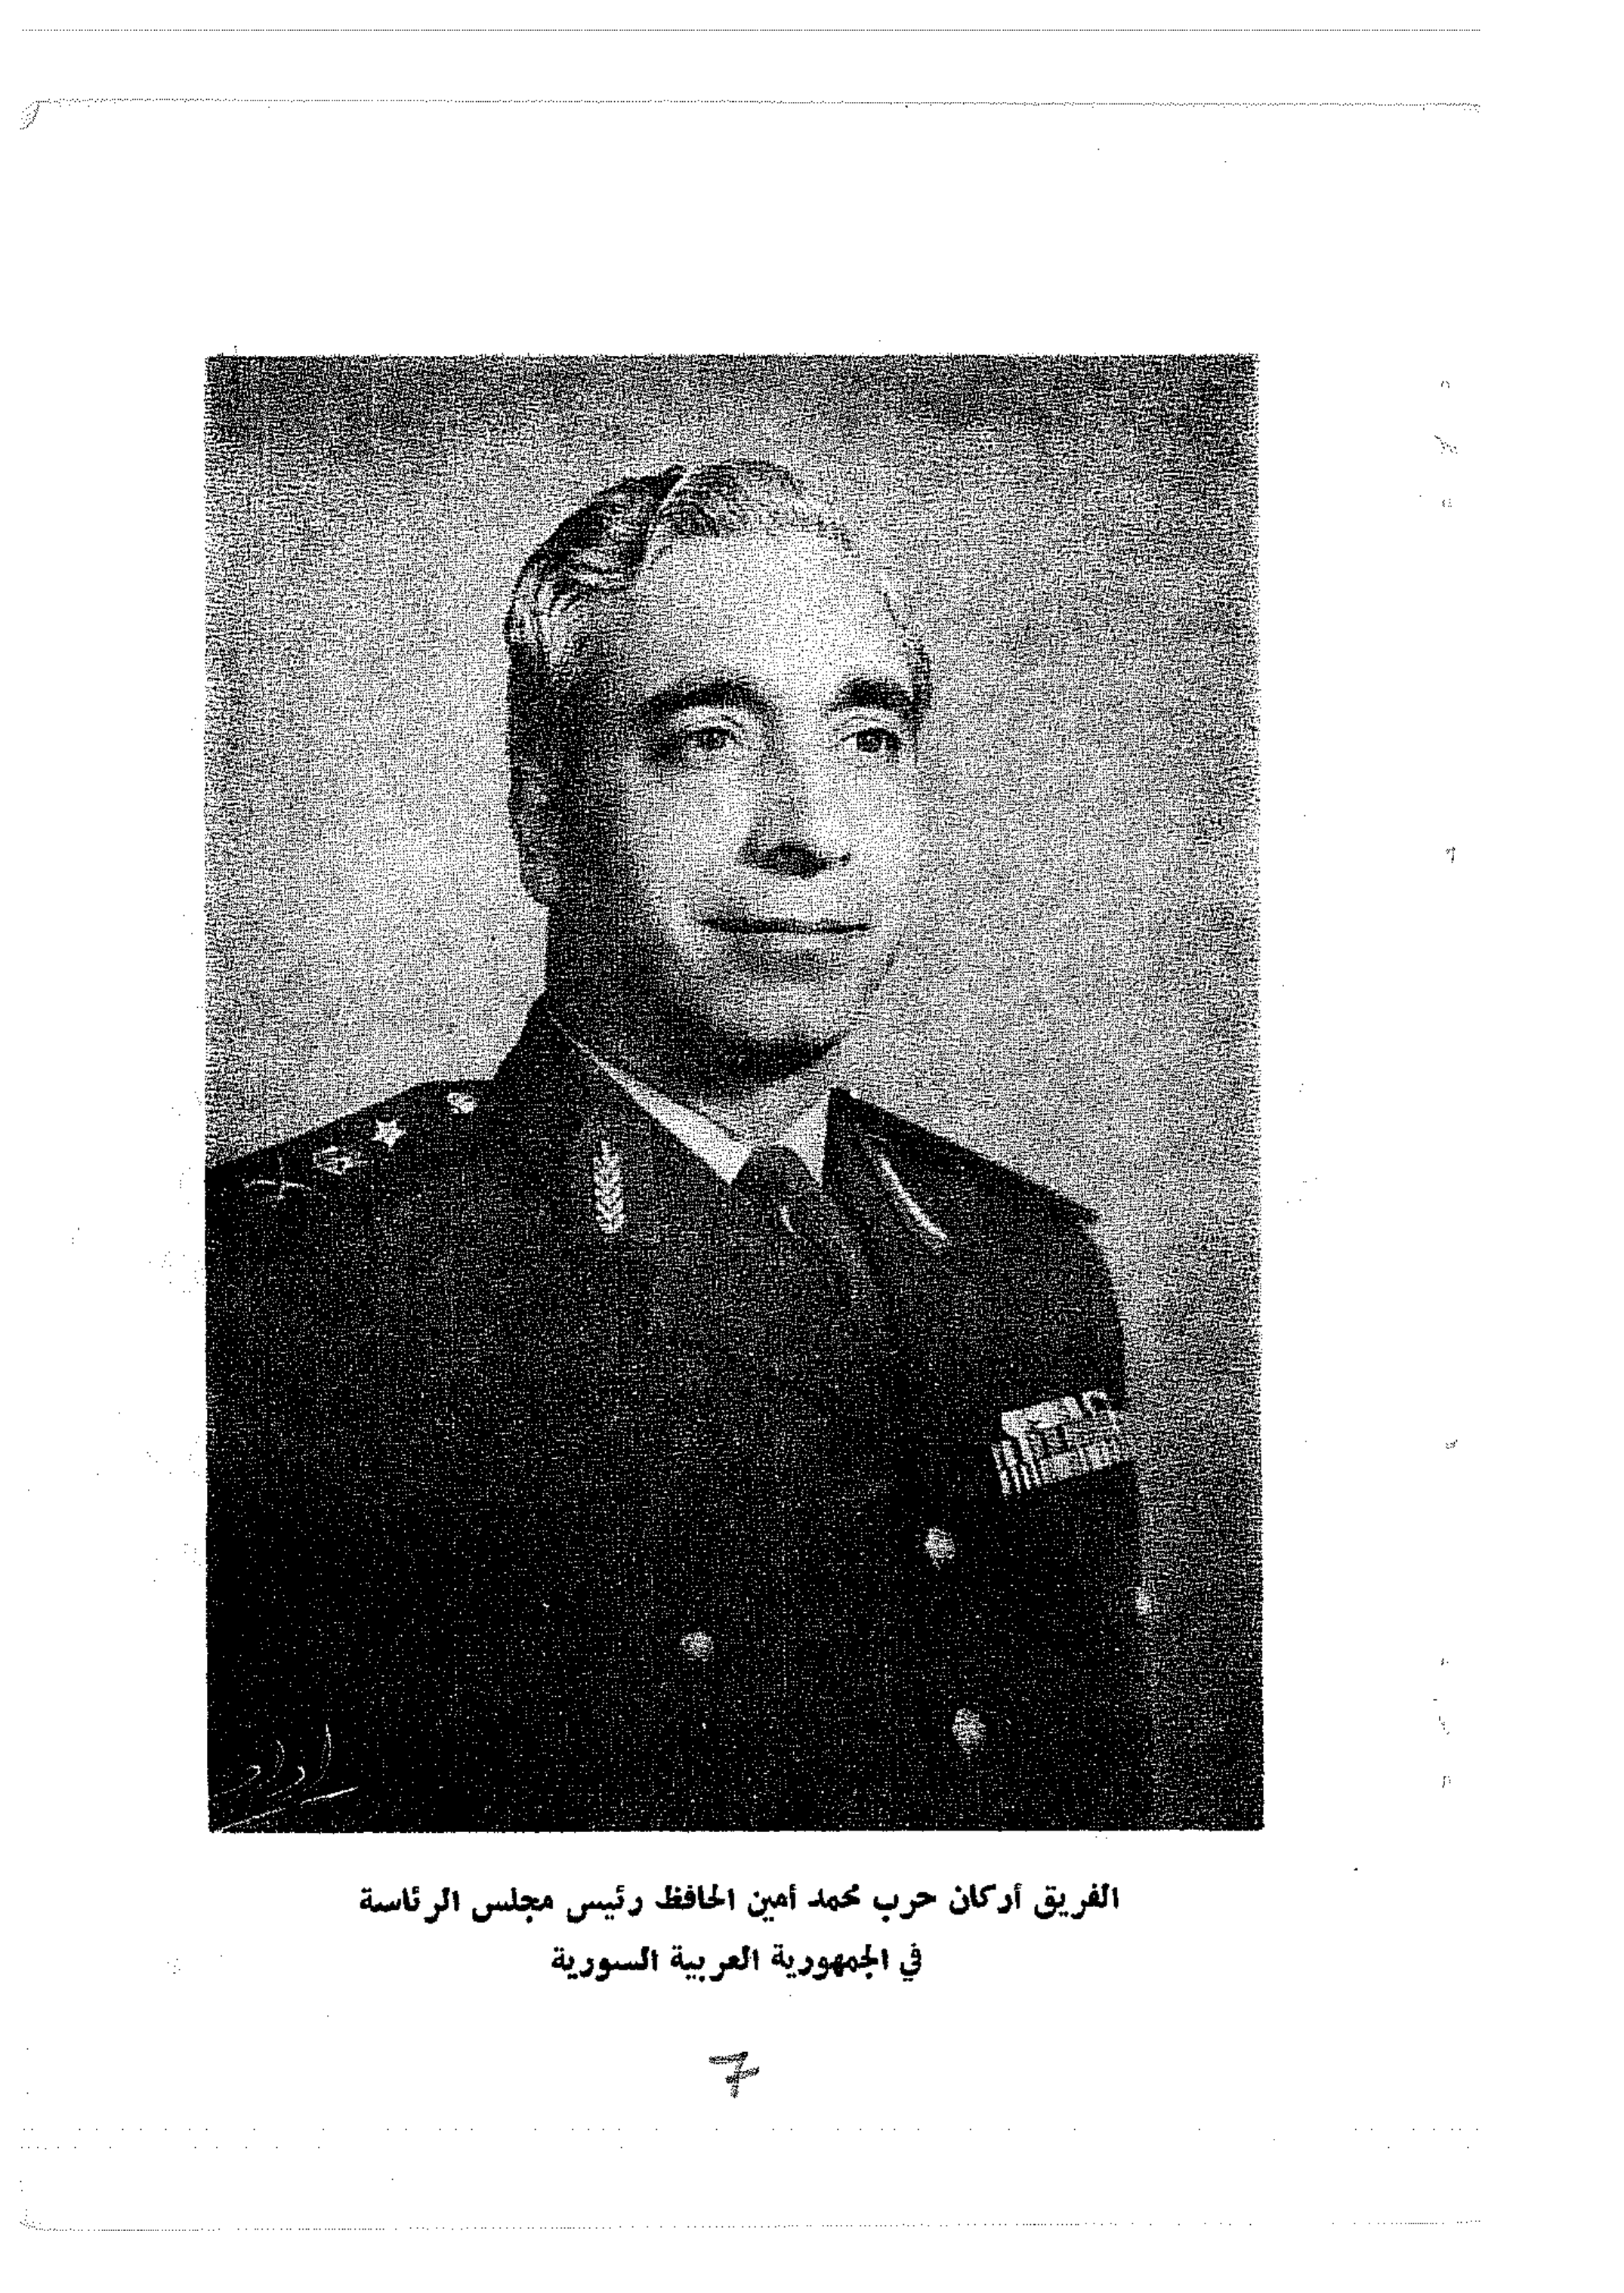 الفريق أركان حرب محمد أمين الحافظ رئيس مجلس الرئاسة
في الجمهورية العربية السورية
7